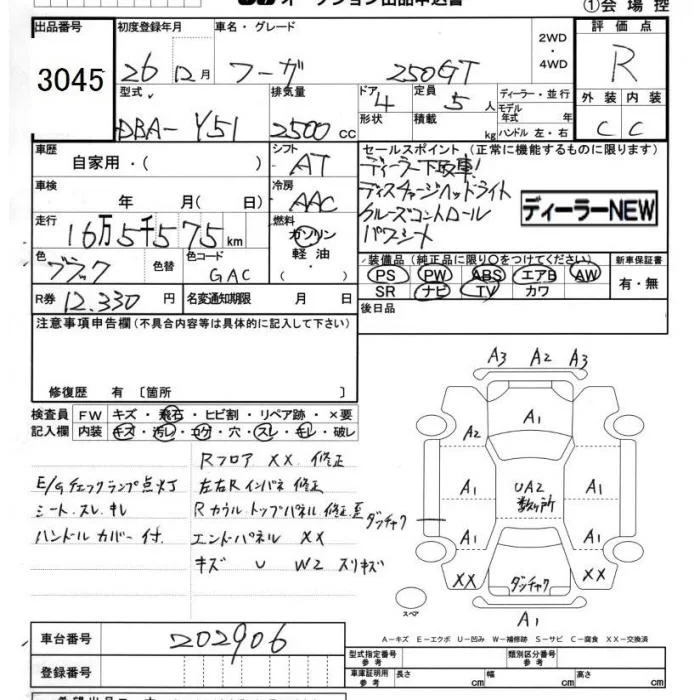 オークション出品申込書
① 会 場 控
出品番号
3045
初度登録年月
26年 12月
車名・グレード
フーガ 250GT
2WD
・
4WD
評 価 点
R
外 装 内 装
C C
型式
DBA- Y51
排気量
2500 CC
ドア 4
形状
定員 5 人
積載 kg
ディーラー・並 行
モデル
年式 年
ハンドル 左・右
車歴
自家用・( )
シフト
AT
セールスポイント (正常に機能するものに限ります)
ディーラー下取車!
ディスチャージヘッドライト
クルーズコントロール
パワーシート
ディーラーNEW
車検
年 月( 日)
冷房
AAC
走行
16万5千575 km
燃料
ガソリン
軽 油
・
( )
色
ブラック
色替
色コード
GAC
装備品 (純正品に限り○をつけてください)
PS PW ABS エアB AW
SR ナビ TV カワ
新車保証書
有・無
R券 12,330 円
名変通知期限 月 日
後日品
注意事項申告欄(不具合内容等は具体的に記入して下さい)
修復歴 有 〔箇所 〕
検査員
記入欄
FW キズ・飛石・ヒビ割・リペア跡・×要
内装 キズ・汚レ・コゲ・穴・スレ・キレ・破レ
E/Gチェックランプ点灯
シート スレ キレ
ハンドル カバー 付
Rフロア XX 修正
左右Rインパネ 修正
Rカウルトップパネル 修正歪
エンドパネル XX
キズ U W2 スリキズ
A3 A2 A3
A1
A2
A1 UA2 A1
数ヶ所
ダンチャク
A1 A1
XX ダンチャク XX
スペア
A1
A−キズ E−エクボ U−凹み W−補修跡 S−サビ C−腐食 XX−交換済
車台番号
202906
登録番号
型式指定番号
参 考
類別区分番号
参 考
車庫証明用
参 考
長さ cm 幅 cm 高さ cm